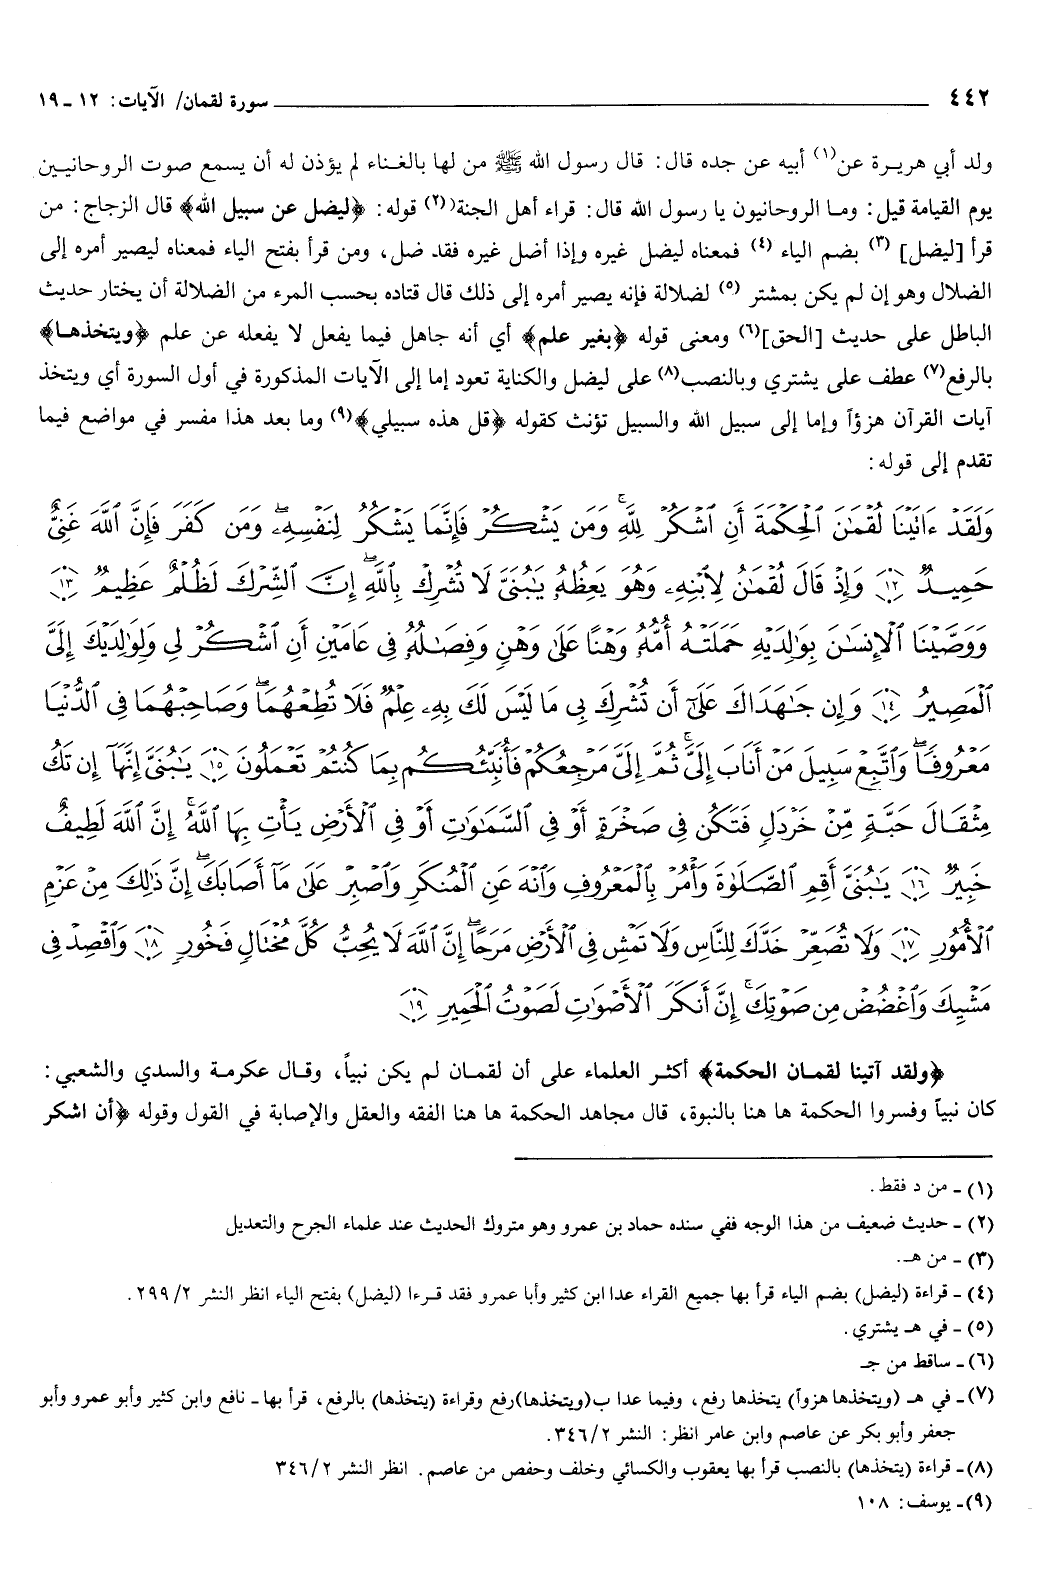 ٤٤٢ سورة لقمان/ الآيات: ١٢ ـ ١٩
ولد أبي هريرة عن(١) أبيه عن جده قال: قال رسول الله ﷺ من لها بالغناء لم يؤذن له أن يسمع صوت الروحانيين
يوم القيامة قيل: وما الروحانيون يا رسول الله قال: قراء أهل الجنة(٢) قوله: ﴿ليضل عن سبيل الله﴾ قال الزجاج: من
قرأ [ليضل] (٣) بضم الياء (٤) فمعناه ليضل غيره وإذا أضل غيره فقد ضل، ومن قرأ بفتح الياء فمعناه ليصير أمره إلى
الضلال وهو إن لم يكن بمشتر (٥) لضلالة فإنه يصير أمره إلى ذلك قال قتاده بحسب المرء من الضلالة أن يختار حديث
الباطل على حديث [الحق](٦) ومعنى قوله ﴿بغير علم﴾ أي أنه جاهل فيما يفعل لا يفعله عن علم ﴿ويتخذها﴾
بالرفع(٧) عطف على يشتري وبالنصب(٨) على ليضل والكناية تعود إما إلى الآيات المذكورة في أول السورة أي ويتخذ
آيات القرآن هزؤاً وإما إلى سبيل الله والسبيل تؤنث كقوله ﴿قل هذه سبيلي﴾(٩) وما بعد هذا مفسر في مواضع فيما
تقدم إلى قوله:
وَلَقَدْ ءَاتَيْنَا لُقْمَٰنَ ٱلْحِكْمَةَ أَنِ ٱشْكُرْ لِلَّهِ ۚ وَمَن يَشْكُرْ فَإِنَّمَا يَشْكُرُ لِنَفْسِهِۦ ۖ وَمَن كَفَرَ فَإِنَّ ٱللَّهَ غَنِىٌّ
حَمِيدٌ ١٢ وَإِذْ قَالَ لُقْمَٰنُ لِٱبْنِهِۦ وَهُوَ يَعِظُهُۥ يَٰبُنَىَّ لَا تُشْرِكْ بِٱللَّهِ ۖ إِنَّ ٱلشِّرْكَ لَظُلْمٌ عَظِيمٌ ١٣
وَوَصَّيْنَا ٱلْإِنسَٰنَ بِوَٰلِدَيْهِ حَمَلَتْهُ أُمُّهُۥ وَهْنًا عَلَىٰ وَهْنٍ وَفِصَٰلُهُۥ فِى عَامَيْنِ أَنِ ٱشْكُرْ لِى وَلِوَٰلِدَيْكَ إِلَىَّ
ٱلْمَصِيرُ ١٤ وَإِن جَٰهَدَاكَ عَلَىٰٓ أَن تُشْرِكَ بِى مَا لَيْسَ لَكَ بِهِۦ عِلْمٌ فَلَا تُطِعْهُمَا ۖ وَصَاحِبْهُمَا فِى ٱلدُّنْيَا
مَعْرُوفًا ۖ وَٱتَّبِعْ سَبِيلَ مَنْ أَنَابَ إِلَىَّ ۚ ثُمَّ إِلَىَّ مَرْجِعُكُمْ فَأُنَبِّئُكُم بِمَا كُنتُمْ تَعْمَلُونَ ١٥ يَٰبُنَىَّ إِنَّهَآ إِن تَكُ
مِثْقَالَ حَبَّةٍ مِّنْ خَرْدَلٍ فَتَكُن فِى صَخْرَةٍ أَوْ فِى ٱلسَّمَٰوَٰتِ أَوْ فِى ٱلْأَرْضِ يَأْتِ بِهَا ٱللَّهُ ۚ إِنَّ ٱللَّهَ لَطِيفٌ
خَبِيرٌ ١٦ يَٰبُنَىَّ أَقِمِ ٱلصَّلَوٰةَ وَأْمُرْ بِٱلْمَعْرُوفِ وَٱنْهَ عَنِ ٱلْمُنكَرِ وَٱصْبِرْ عَلَىٰ مَآ أَصَابَكَ ۖ إِنَّ ذَٰلِكَ مِنْ عَزْمِ
ٱلْأُمُورِ ١٧ وَلَا تُصَعِّرْ خَدَّكَ لِلنَّاسِ وَلَا تَمْشِ فِى ٱلْأَرْضِ مَرَحًا ۖ إِنَّ ٱللَّهَ لَا يُحِبُّ كُلَّ مُخْتَالٍ فَخُورٍ ١٨ وَٱقْصِدْ فِى
مَشْيِكَ وَٱغْضُضْ مِن صَوْتِكَ ۚ إِنَّ أَنكَرَ ٱلْأَصْوَٰتِ لَصَوْتُ ٱلْحَمِيرِ ١٩
﴿ولقد آتينا لقمان الحكمة﴾ أكثر العلماء على أن لقمان لم يكن نبياً، وقال عكرمة والسدي والشعبي:
كان نبياً وفسروا الحكمة ها هنا بالنبوة، قال مجاهد الحكمة ها هنا الفقه والعقل والإصابة في القول وقوله ﴿أن اشكر
(١) ـ من د فقط.
(٢) ـ حديث ضعيف من هذا الوجه ففي سنده حماد بن عمرو وهو متروك الحديث عند علماء الجرح والتعديل
(٣) ـ من هـ.
(٤) ـ قراءة (ليضل) بضم الياء قرأ بها جميع القراء عدا ابن كثير وأبا عمرو فقد قرءا (ليضل) بفتح الياء انظر النشر ٢٩٩/٢.
(٥) ـ في هـ يشتري.
(٦) ـ ساقط من جـ
(٧) ـ في هـ (ويتخذها هزواً) يتخذها رفع، وفيما عدا ب(ويتخذها)رفع وقراءة (يتخذها) بالرفع، قرأ بها ـ نافع وابن كثير وأبو عمرو وأبو
جعفر وأبو بكر عن عاصم وابن عامر انظر: النشر ٣٤٦/٢.
(٨) ـ قراءة (يتخذها) بالنصب قرأ بها يعقوب والكسائي وخلف وحفص من عاصم. انظر النشر ٣٤٦/٢
(٩) ـ يوسف: ١٠٨